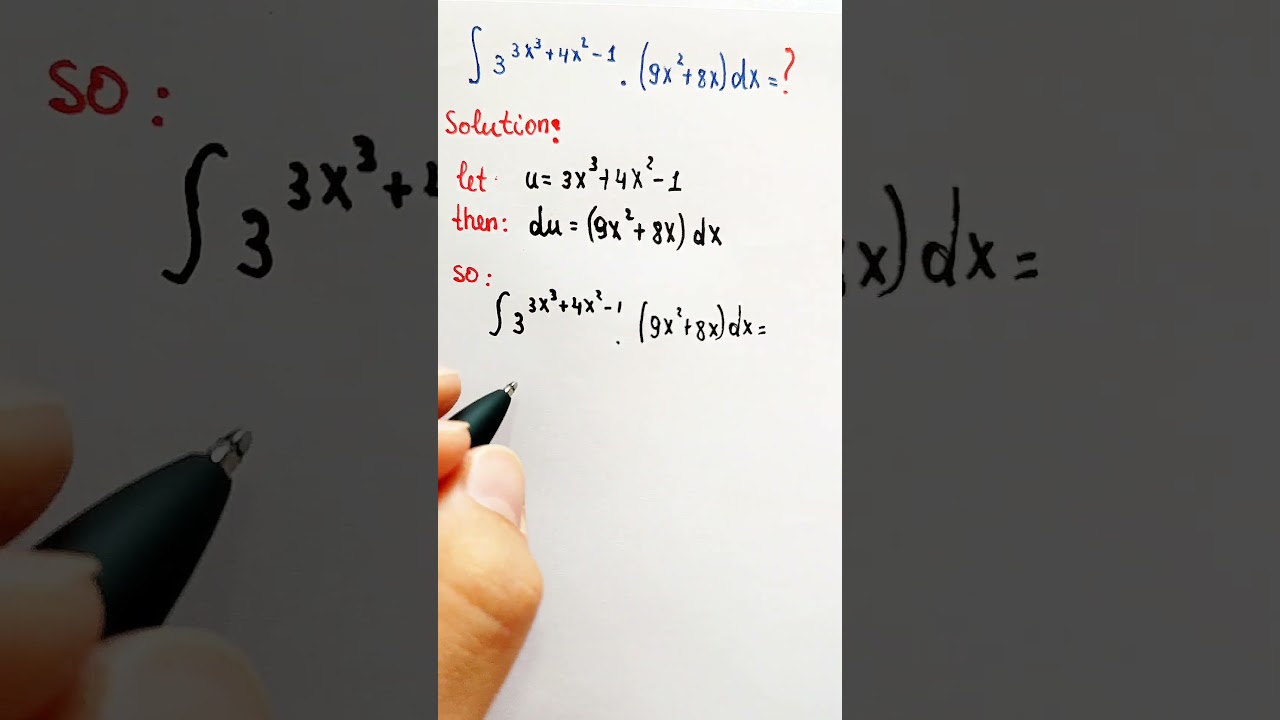 ∫ 3^(3x³+4x²-1) . (9x²+8x) dx = ?
Solution:
let u = 3x³+4x²-1
then: du = (9x²+8x) dx
so:
∫ 3^(3x³+4x²-1) . (9x²+8x) dx =
SO:
∫ 3^(3x³+4
x) dx =